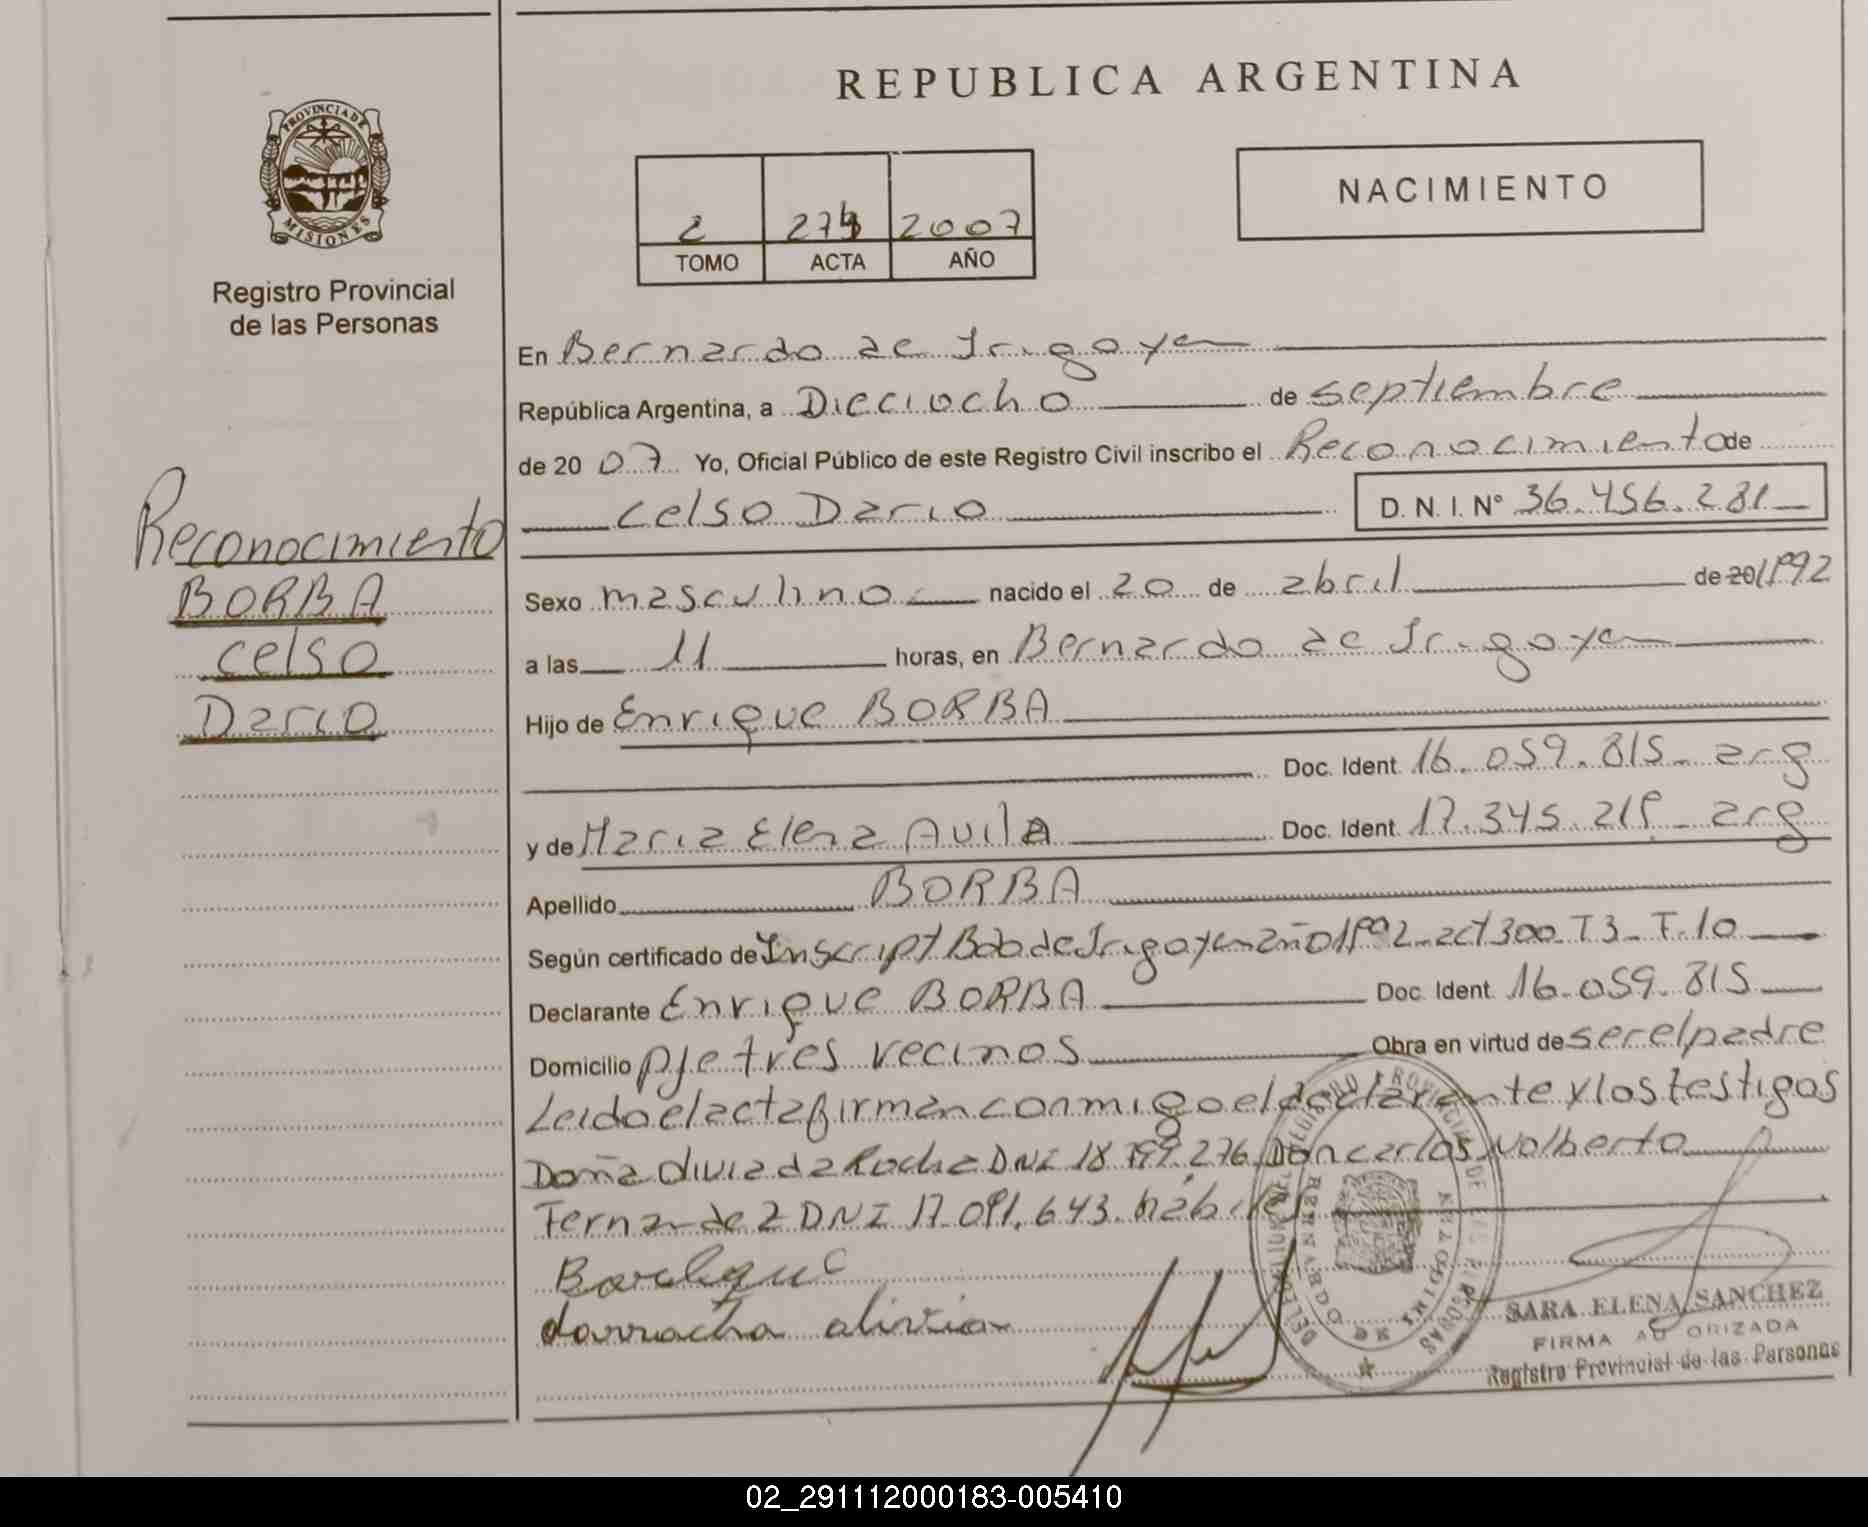 REPUBLICA ARGENTINA
PROVINCIA DE
MISIONES
Registro Provincial
de las Personas
2 274 2007
TOMO ACTA AÑO
NACIMIENTO
Reconocimiento
BORBA
Celso
Dario
En Bernardo de Irigoyen
República Argentina, a Dieciocho de septiembre
de 20 07 Yo, Oficial Público de este Registro Civil inscribo el Reconocimiento de
Celso Dario D. N. I. Nº 36.456.281
Sexo masculino nacido el 20 de abril de 20/1992
a las 11 horas, en Bernardo de Irigoyen
Hijo de Enrique BORBA
Doc. Ident. 16.059.815 - arg
y de Maria Elena Avila Doc. Ident. 17.345.219 - arg
Apellido BORBA
Según certificado de Inscript Bdo de Irigoyen año 1992 - act 300 T3 - F.10
Declarante Enrique BORBA Doc. Ident. 16.059.815
Domicilio pje tres vecinos Obra en virtud de ser el padre
Leido el acta firman conmigo el declarante y los testigos
Doña Olivia da Rocha DNI 18.799.276 Don Carlos Nolberto
Fernandez DNI 17.091.643. hábiles
darracha alivia
SARA ELENA SANCHEZ
FIRMA AUTORIZADA
Registro Provincial de las Personas
02_291112000183-005410